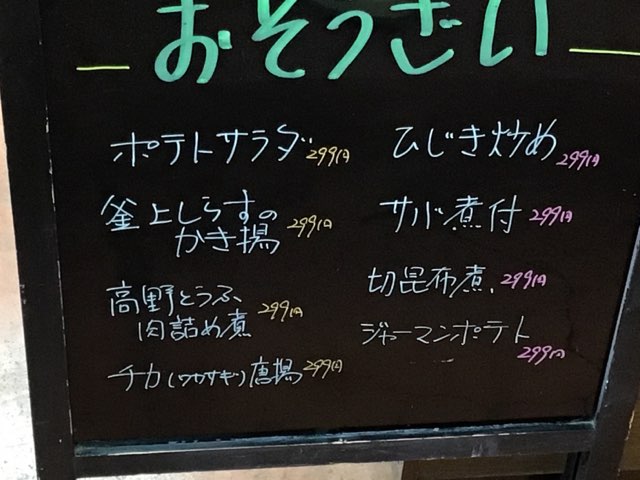 おそうざい
ポテトサラダ 299円
釜上しらすの
かき揚 299円
高野とうふ
肉詰め煮 299円
チカ(ワカサギ)唐揚 299円
ひじき炒め 299円
サバ煮付 299円
切昆布煮 299円
ジャーマンポテト
299円